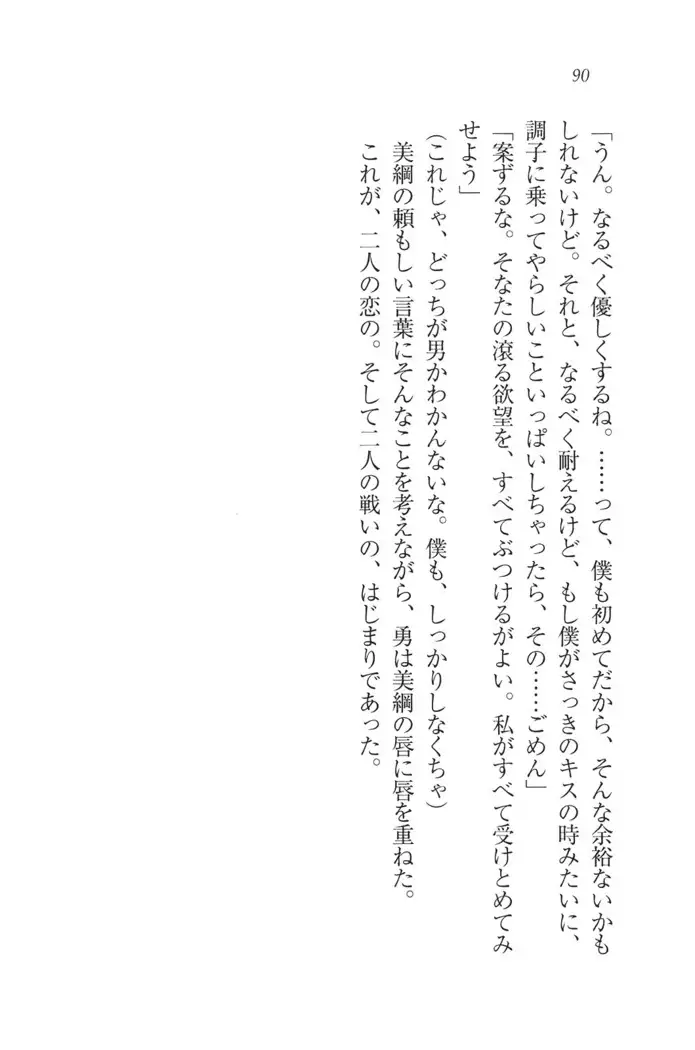 90
「うん。なるべく優しくするね。……って、僕も初めてだから、そんな余裕ないかも
しれないけど。それと、なるべく耐えるけど、もし僕がさっきのキスの時みたいに、
調子に乗ってやらしいこといっぱいしちゃったら、その……ごめん」
「案ずるな。そなたの滾る欲望を、すべてぶつけるがよい。私がすべて受けとめてみ
せよう」
（これじゃ、どっちが男かわかんないな。僕も、しっかりしなくちゃ）
美綱の頼もしい言葉にそんなことを考えながら、勇は美綱の唇に唇を重ねた。
これが、二人の恋の。そして二人の戦いの、はじまりであった。